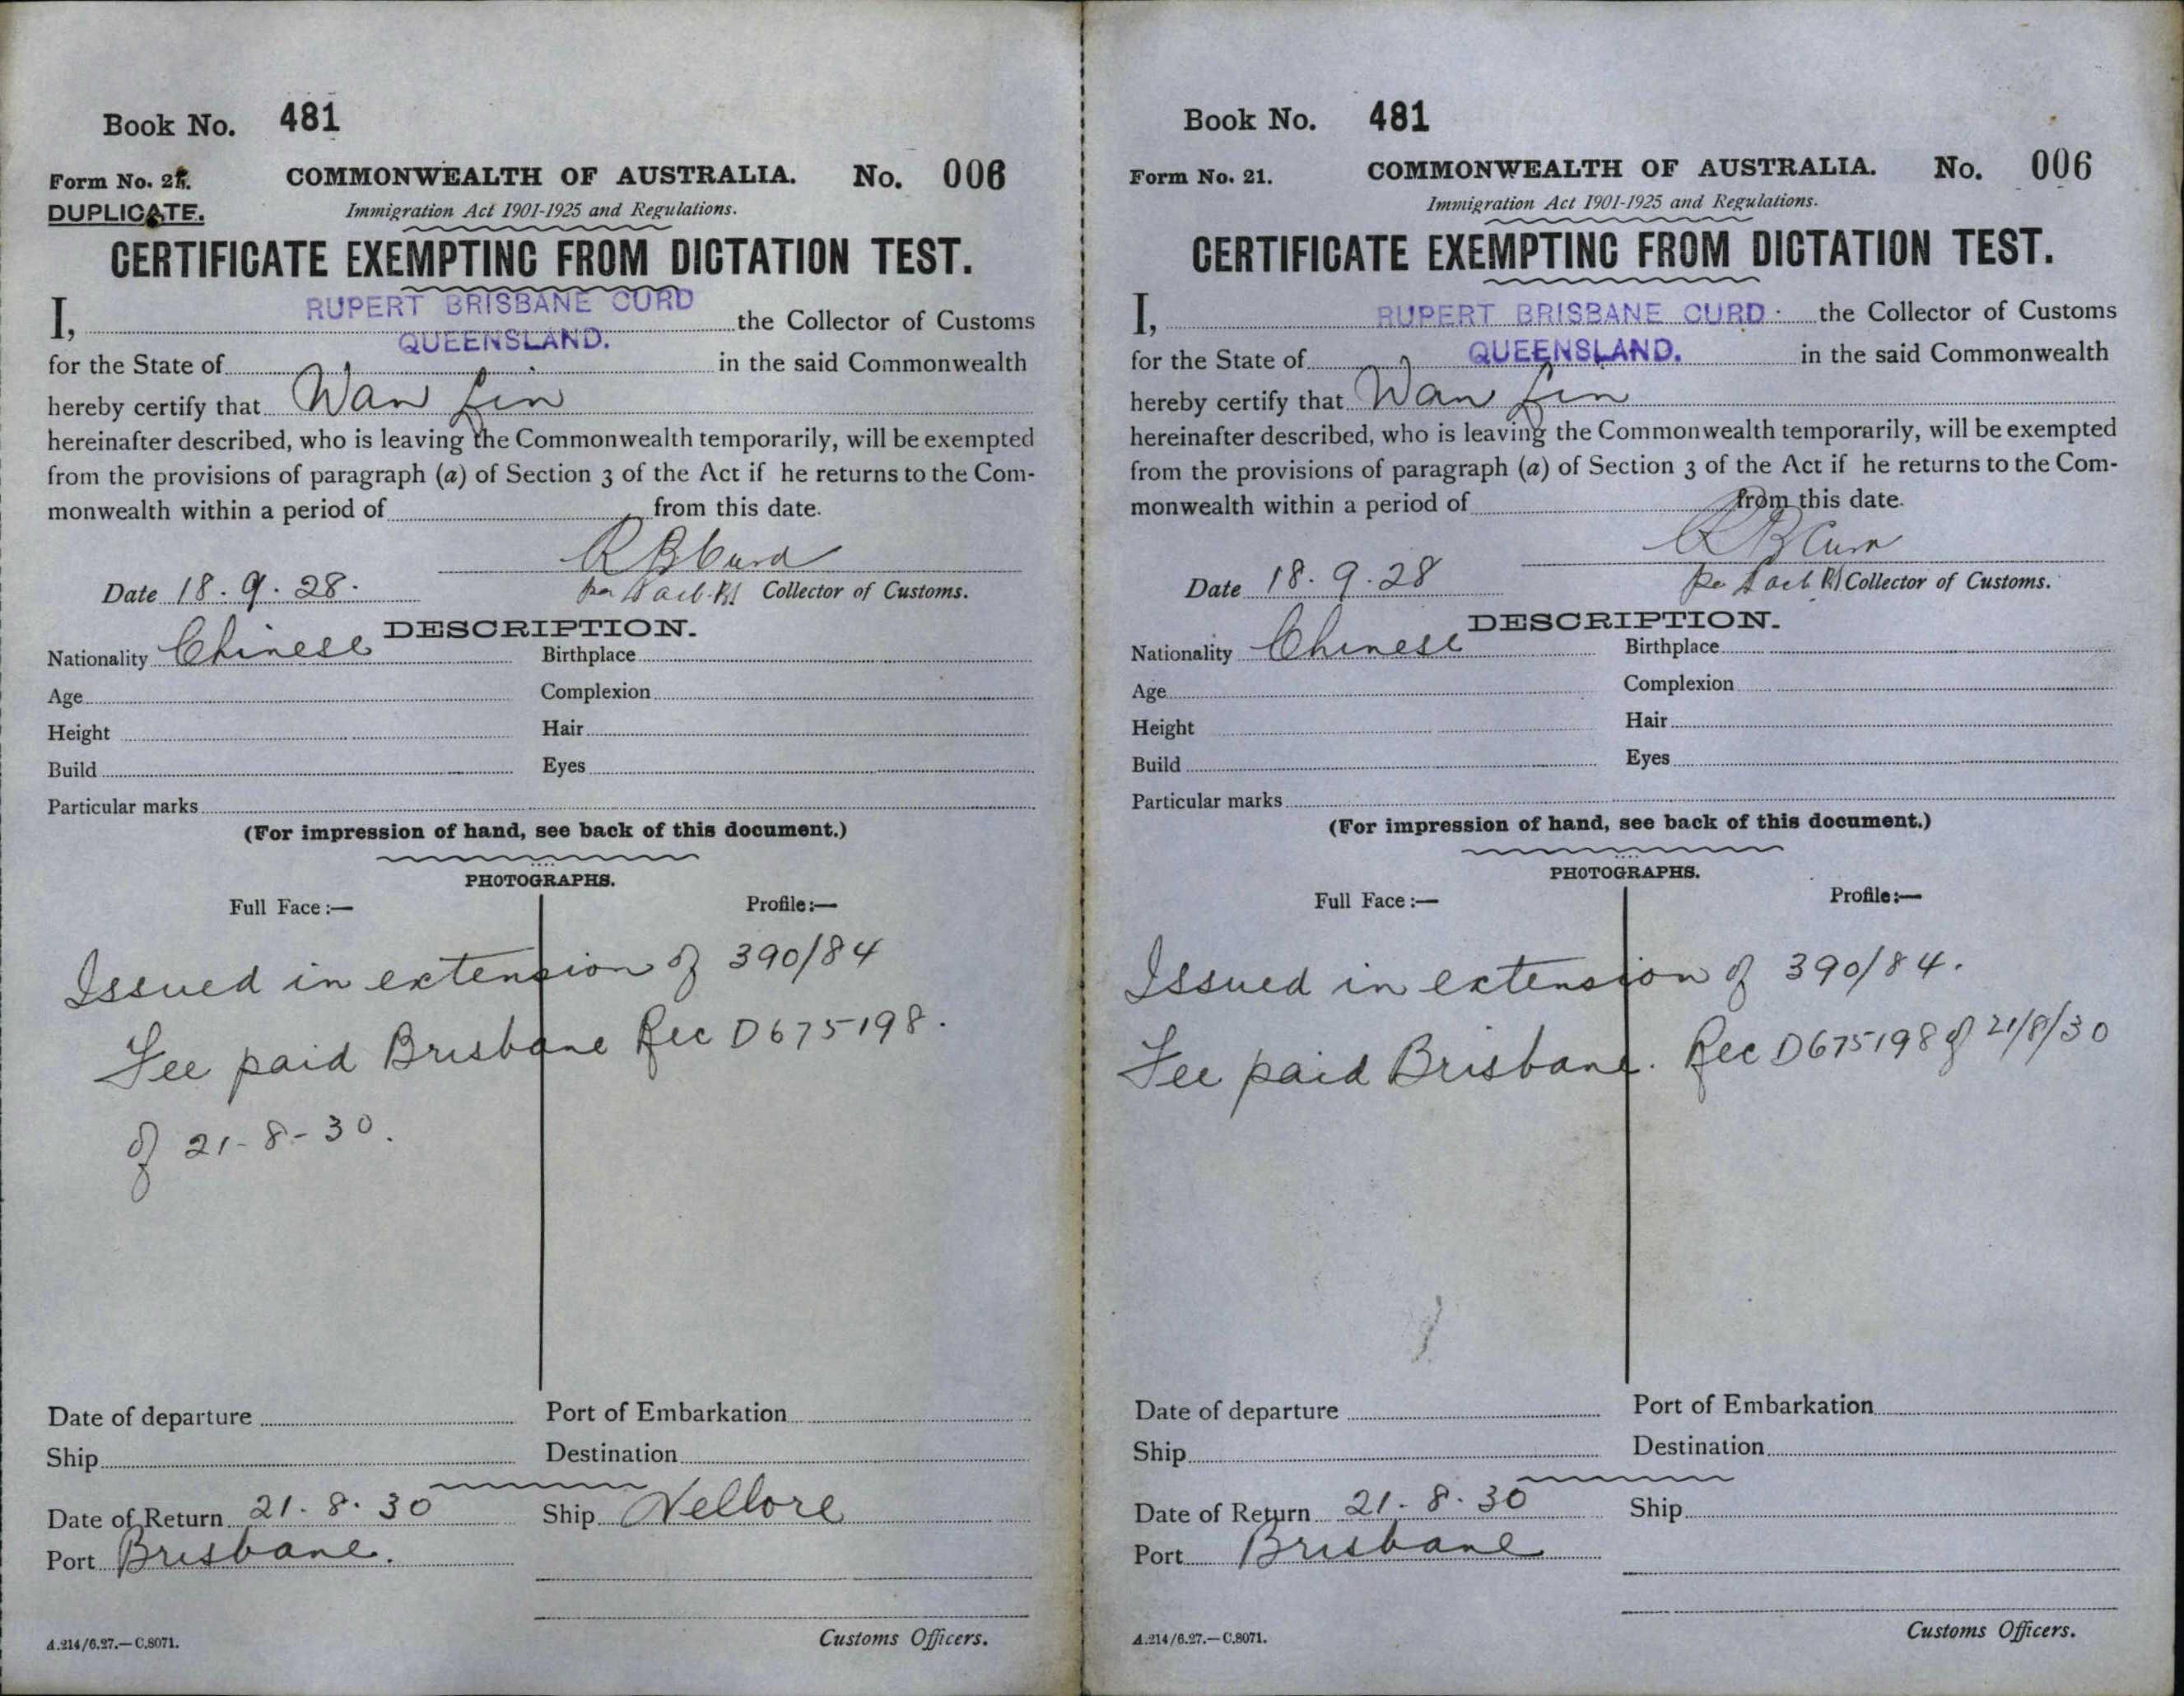 Book No. 481
Form No. 21.
COMMONWEALTH OF AUSTRALIA. No. 006
DUPLICATE.
Immigration Act 1901-1925 and Regulations.
CERTIFICATE EXEMPTING FROM DICTATION TEST.
I, RUPERT BRISBANE CURD the Collector of Customs
for the State of QUEENSLAND. in the said Commonwealth
hereby certify that Wan Lin
hereinafter described, who is leaving the Commonwealth temporarily, will be exempted
from the provisions of paragraph (a) of Section 3 of the Act if he returns to the Com-
monwealth within a period of from this date.
R B Curd
Date 18.9.28. per Collector of Customs.
DESCRIPTION.
Nationality Chinese Birthplace
Age Complexion
Height Hair
Build Eyes
Particular marks
(For impression of hand, see back of this document.)
PHOTOGRAPHS.
Full Face :— Profile :—
Issued in extension of 390/84
Fee paid Brisbane Rec D675198.
of 21-8-30.
Date of departure Port of Embarkation
Ship Destination
Date of Return 21.8.30 Ship Nellore
Port Brisbane.
A.214/6.27.—C.8071. Customs Officers.
Book No. 481
Form No. 21. COMMONWEALTH OF AUSTRALIA. No. 006
Immigration Act 1901-1925 and Regulations.
CERTIFICATE EXEMPTING FROM DICTATION TEST.
I, RUPERT BRISBANE CURD the Collector of Customs
for the State of QUEENSLAND. in the said Commonwealth
hereby certify that Wan Lin
hereinafter described, who is leaving the Commonwealth temporarily, will be exempted
from the provisions of paragraph (a) of Section 3 of the Act if he returns to the Com-
monwealth within a period of from this date.
R B Curd
Date 18.9.28 per Collector of Customs.
DESCRIPTION.
Nationality Chinese Birthplace
Age Complexion
Height Hair
Build Eyes
Particular marks
(For impression of hand, see back of this document.)
PHOTOGRAPHS.
Full Face :— Profile :—
Issued in extension of 390/84.
Fee paid Brisbane. Rec D675198 of 21/8/30
Date of departure Port of Embarkation
Ship Destination
Date of Return 21.8.30 Ship
Port Brisbane
A.214/6.27.—C.8071. Customs Officers.